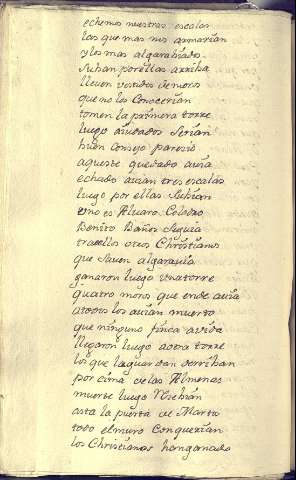 echemos nuestras escalas
las que mas nos armarian
y los mas algarabiados
Suban por ellas arriba
lleven vestidos de moros
que no los Conocerian
tomen la primera torre
luego aiudados Serian
buen consejo parezio
aqueste que dado avia
echado avian tres escalas
luego por ellas Subian
uno es Alvaro Colodro
Benito Baños Seguia
tras ellos otros Christianos
que Saven algaravia
ganaron luego una torre
quatro moros que ende avia
a todos los avian muerto
que ninguno finca a vida
llegaron luego a otra torre
los que la guardan derriban
por cima de las Almenas
muerte luego
asta la puerta de Martos
todo el muro Conquerian
los Christianos han ganado